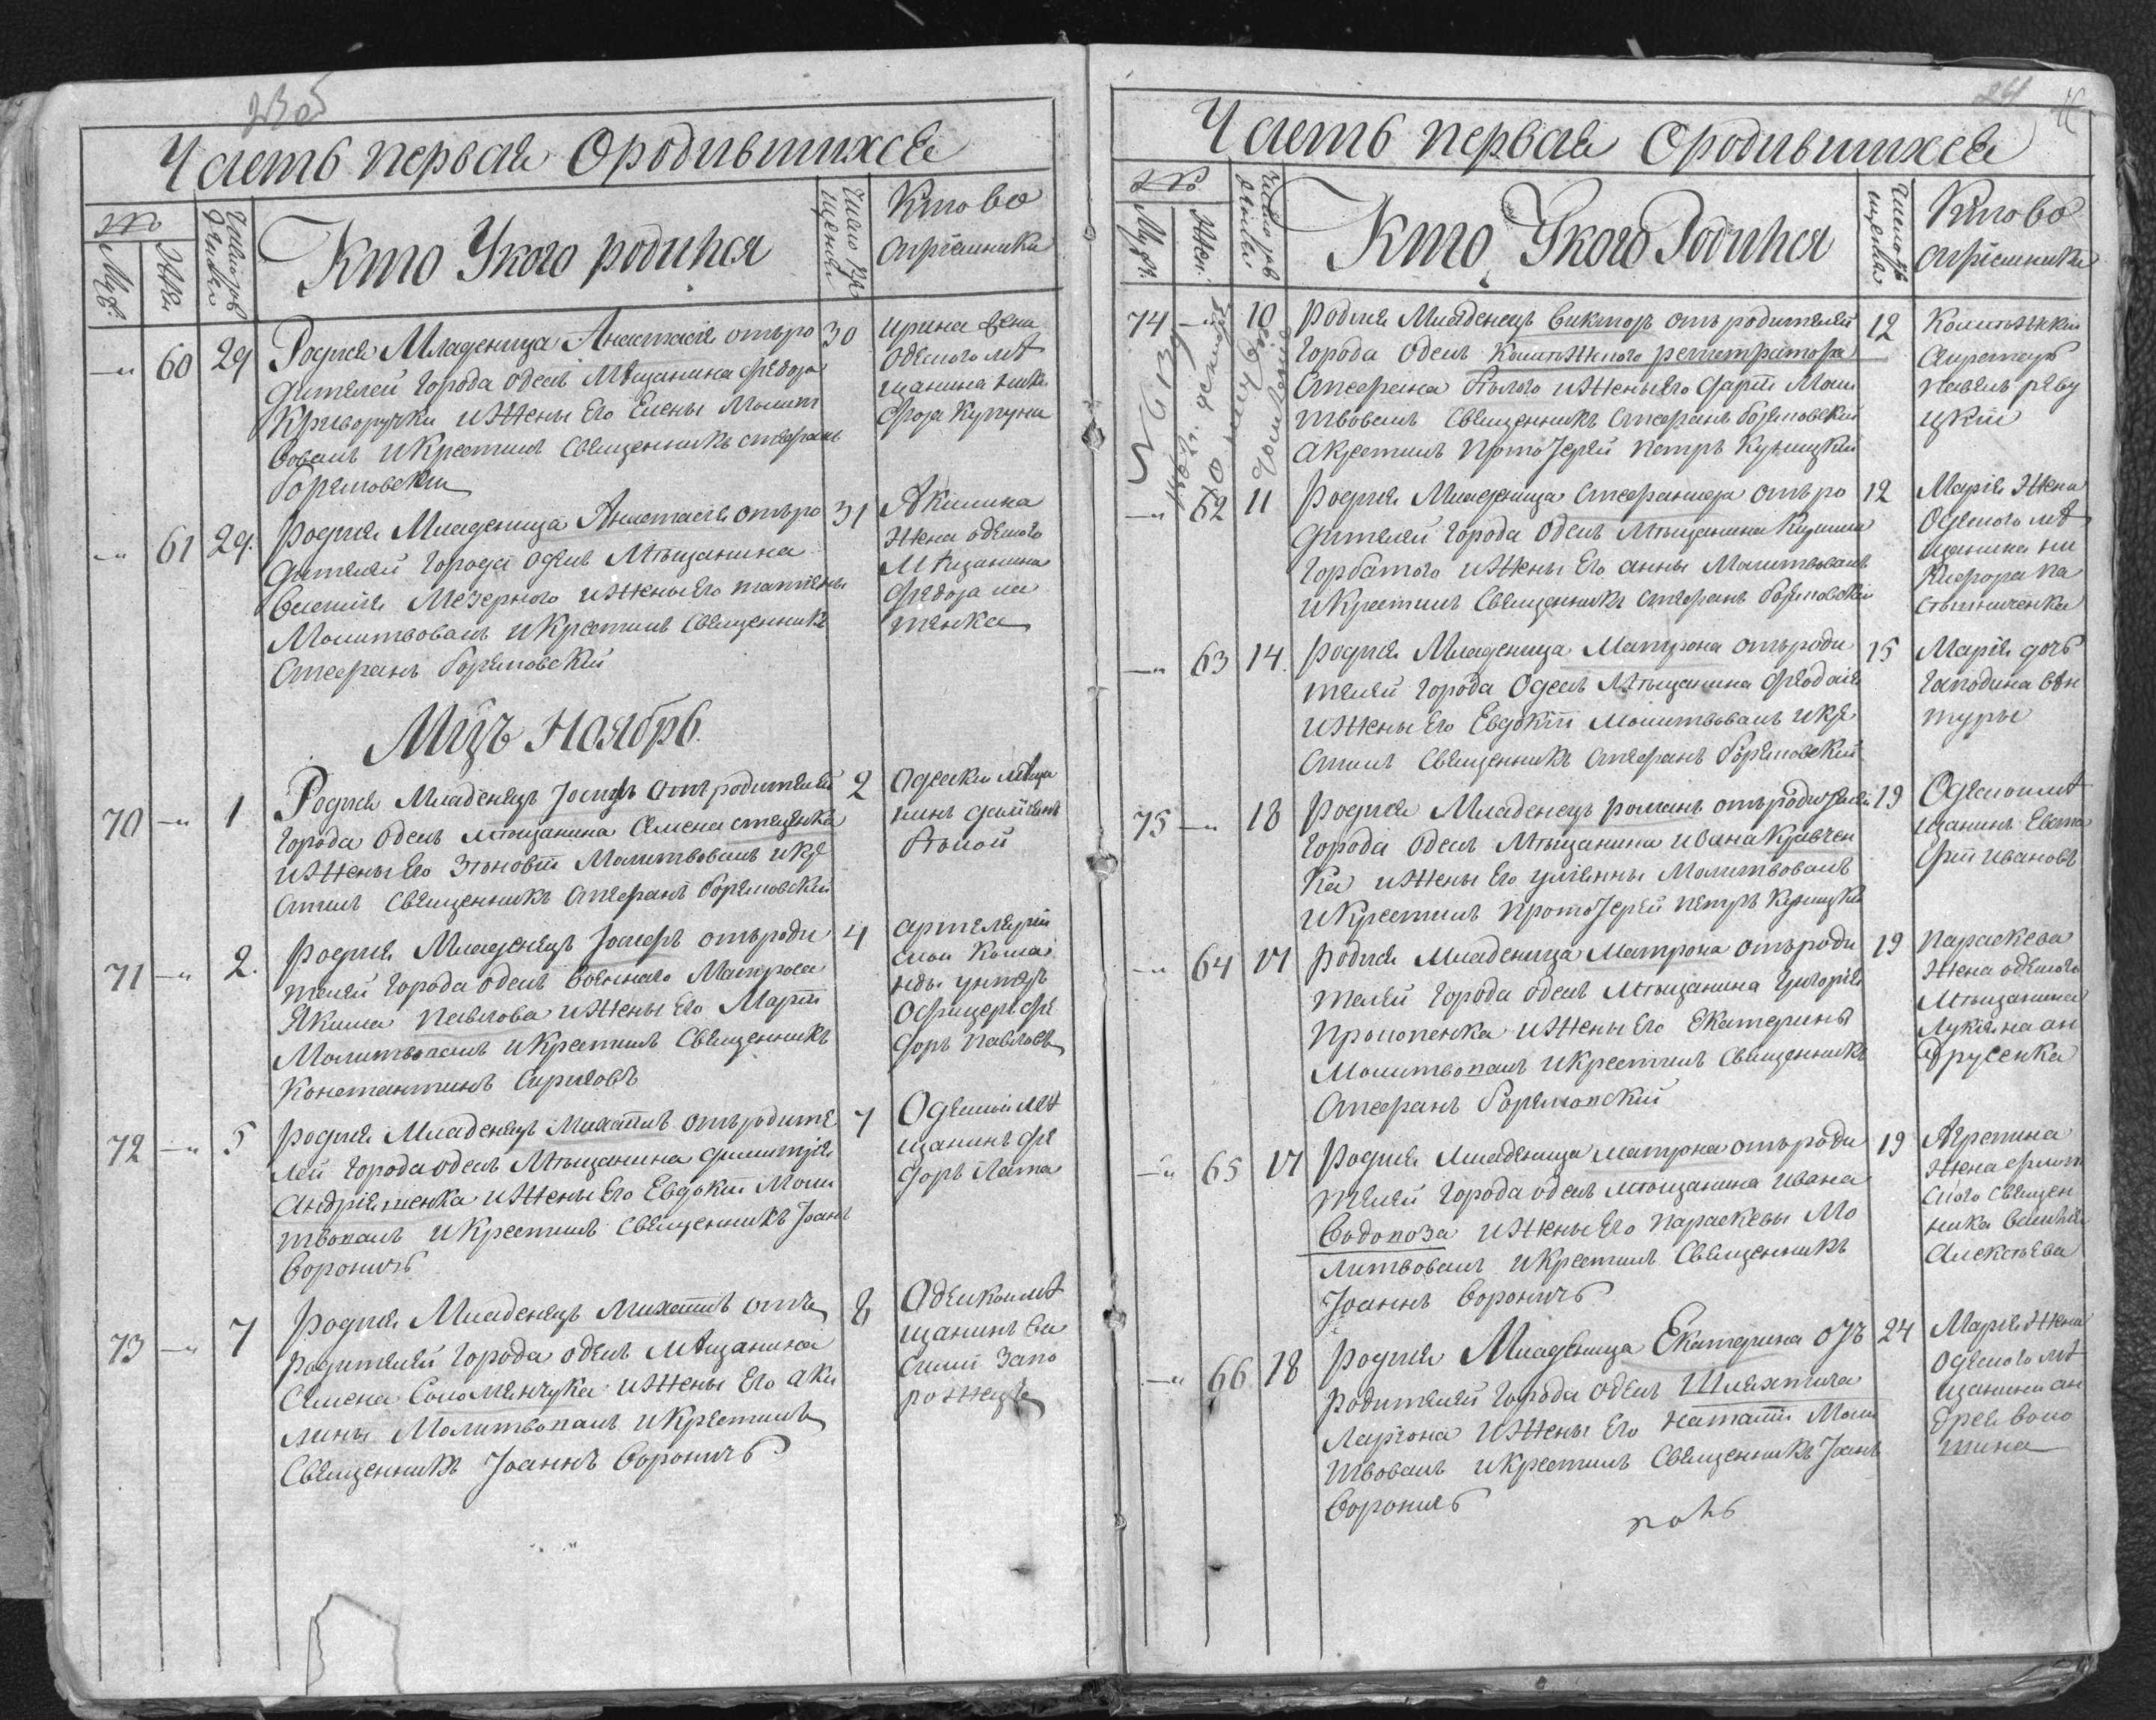 23об
Часть первая Ородившихся
№
Муж.
Жен
Число рождения
Кто Укого родился
Число крещения
Кто во
спрiемника
—" 60 29 Родися Младеница Анастасiя отъ ро 30
дителей города Одеси Мещанина Федора
Криворучки и жены Его Елены Молит
вовалъ и Крестилъ Священникъ Стефанъ
Боремовскiй
Ирина жена
Одескаго ме
щанина Ники
фора Купуна
—" 61 29. Родися Младеница Анастасiя отъ ро 31
дителей города Одесы Мещанина
Василiя Мезерного и жены Его Татiяны
Молитвовалъ и Крестилъ Священникъ
Стефанъ Боремовскiй
Акилина
жена одеского
Мещанина
Федора па
тенка
Мцъ Ноябрь.
70 —" 1 Родися Младенецъ Iосифъ отъ родителей 2
города Одесы мещанина Семена стеценка
и жены Его Зѣновiи Молитвовалъ и кре
стилъ Священникъ Стефанъ Боремовскiй
Одески меща
нинъ Дамiянъ
Бѣлой
71 —" 2. Родися Младенецъ Iосифъ отъ роди 4
телей города Одесы Военнаго Матроса
Якима Павлова и жены Его Марiи
Молитвовалъ и Крестилъ Священникъ
Константинъ Сириговъ
артилерiй
ской Кома
нды унтеръ
Офицеръ Фе
доръ Павловъ
72 —" 5 Родися Младенецъ Михаилъ отъ родите 7
лей города одесы Мещанина Димитрiя
Андрiяшенка и жены Его Евдокiи Моли
твовалъ и Крестилъ Священникъ Iоанъ
Вороничъ
Одеской ме
щанинъ Фе
доръ Лата
73 —" 7 Родися Младенецъ Михаилъ отъ 8
родителей города одесы мещанина
Семена Соломянчука и жены Его Аки
лины Молитвовалъ и Крестилъ
Священникъ Iоаннъ Вороничъ
Одеской ме
щанинъ Ва
силий Запо
рожецъ
24
Часть первая Ородившихся
№
Муж.
Жен.
Число рож
дения
Кто Укого Родился
Число кр
щения
Кто во
спрiемники
74 —" 10 Родися Младенецъ Викторъ отъ родителей 12
города Одесы Колежского регистратора
Стефана Бѣлого и жены Его Софiи Моли
твовалъ Священникъ Стефанъ Боремовскiй
а крестилъ ПротоIерей Петръ Куницкiй
Колежскiй
Секретаръ
Павелъ реву
цкiй
—" 62 11 Родися Младеница Стефанида отъ ро 12
дителей города Одесы Мещанина Кирила
Горбатого и жены Его Анны Молитвовалъ
и Крестилъ Священникъ Стефанъ Боремовскiй
Марiя жена
Одеского ме
щанина Ни
кифора Па
стѣшниченка
—" 63 14. Родися Младеница Матрона отъ роди 15
телей города Одесы Мещанина Феодосiя
и жены Его Евдокiи Молитвовалъ и кре
стилъ Священникъ Стефанъ Боремовскiй
Марiя дочь
Господина вен
туры
75 —" 18 Родися Младенецъ Романъ отъ родителей 19
города Одесы Мещанина Ивана Кравчен
ка и жены Его Улiянны Молитвовалъ
и Крестилъ ПротоIерей Петръ Куницкiй
Одеской ме
щанинъ Евста
фiй Ивановъ
—" 64 17 Родися Младеница Матрона отъ роди 19
телей города Одесы Мещанина Григорiя
Прокопенка и жены Его Екатерины
Молитвовалъ и Крестилъ Священникъ
Стефанъ Боремовскiй
Параскева
жена одеского
Мещанина
Лукiяна ан
друсенка
—" 65 17 Родися Младеница Матрона отъ роди 19
телей города одесы мещанина Ивана
Водопоза и жены Его Параскевы Мо
литвовалъ и Крестилъ Священникъ
Iоаннъ Вороничъ
Агрепина
жена флот
ского священ
ника Василiя
Алексѣева
—" 66 18 Родися Младеница Екатерина отъ 24
родителей города Одесы Шляхтича
Ларiона и жены Его Наталiи Моли
твовалъ и Крестилъ Священникъ Iоанъ
Вороничъ
Марiя жена
Одеского ме
щанина ан
дрея воло
шина